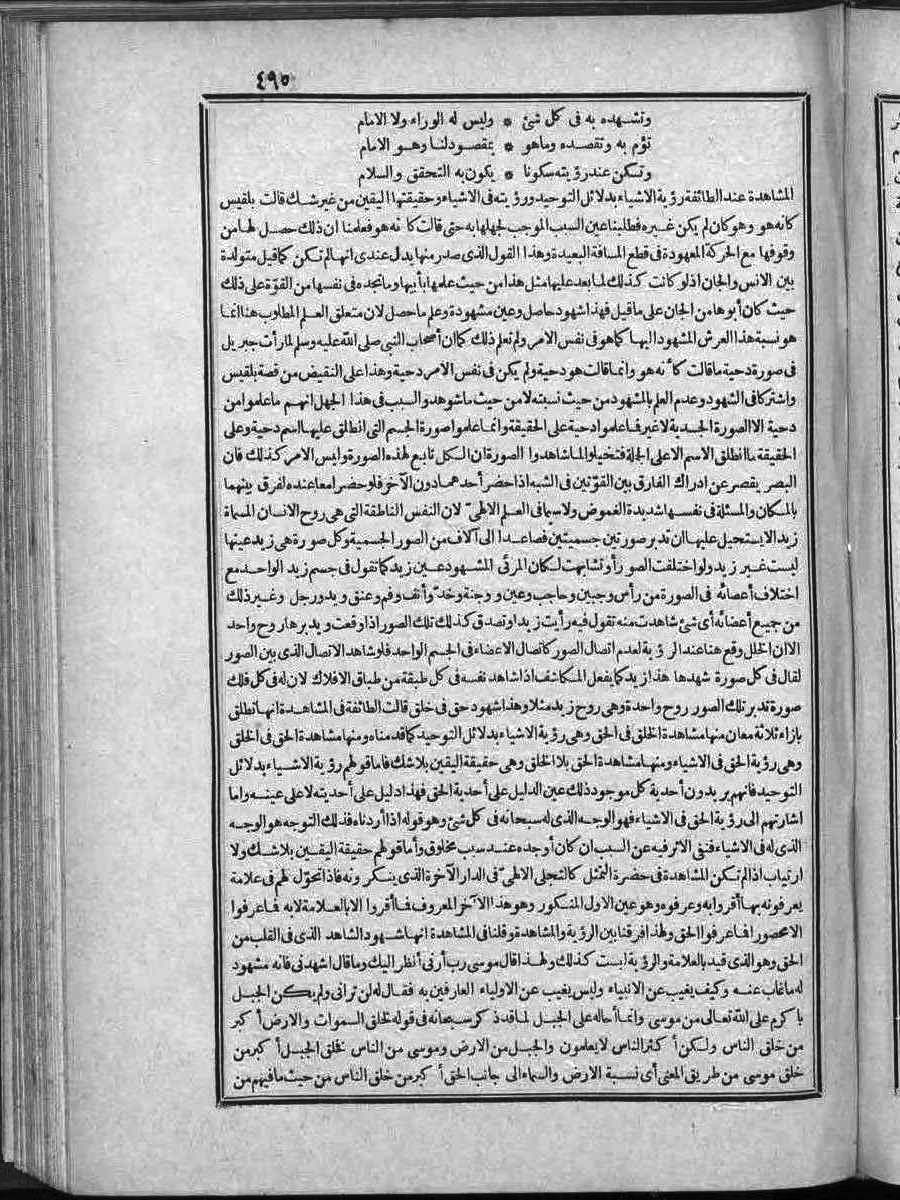 ٤٩٥
وتشهده به في كل شئ * وليس له الوراء ولا الامام
تؤم به وتقصده وماهو * بمقصود لنا وهو الامام
وتسكن عند رؤيته سكونا * يكون به التحقق والسلام
المشاهدة عند الطائفة رؤية الاشياء بدلائل التوحيد ورؤيته في الاشياء وحقيقتها اليقين من غير شك قالت بلقيس
كانه هو وهو كان لم يكن غيره فطلبنا عين السبب الموجب لجهلها به حتى قالت كانه هو فعلمنا ان ذلك حصل لها من
وقوفها مع الحركة المعهودة في قطع المسافة البعيدة وهذا القول الذي صدر منها يدل عندي انها لم تكن كما قيل متولدة
بين الانس والجان اذ لو كانت كذلك لما بعد عليها مثل هذا من حيث علمها بأبيها وما تجده في نفسها من القوة على ذلك
حيث كان أبوها من الجان على ما قيل فهذا شهود حاصل وعين مشهودة وعلم ما حصل لان متعلق العلم المطلوب هنا انما
هو نسبة هذا العرش المشهود اليها كما هو في نفس الامر ولم تعلم ذلك كما ان أصحاب النبي صلى الله عليه وسلم لما رأت جبريل
في صورة دحية ما قالت كأنه هو وانما قالت هو دحية ولم يكن في نفس الامر دحية وهذا على النقيض من قصة بلقيس
واشتركا في الشهود وعدم العلم بالمشهود من حيث نسبته لا من حيث ما شوهد والسبب في هذا الجهل انهم ما علموا من
دحية الا الصورة الجسدية لا غير فما علموا دحية على الحقيقة وانما علموا صورة الجسم التي انطلق عليها اسم دحية وعلى
الحقيقة ما انطلق الاسم الا على الجملة فتخيلوا لما شاهدوا الصورة ان الكل تابع لهذه الصورة وليس الامر كذلك فان
البصر يقصر عن ادراك الفارق بين القوتين في الشبه اذا حضر أحدهما دون الآخر فلو حضرا معا عنده لفرق بينهما
بالمكان والمسئلة في نفسها شديدة الغموض ولا سيما في العلم الالهي لان النفس الناطقة التي هي روح الانسان المسماة
زيد الا يستحيل عليها ان تدبر صورتين جسميتين فصاعدا الى آلاف من الصور الجسمية وكل صورة هي زيد عينها
ليست غير زيد ولو اختلفت الصور أو تشابهت لكان المرئي المشهود عين زيد كما تقول في جسم زيد الواحد مع
اختلاف أعضائه في الصورة من رأس وجبين وحاجب وعين ووجنة وخد وأنف وفم وعنق ويد ورجل وغير ذلك
من جميع أعضائه أي شئ شاهدت منه تقول فيه رأيت زيدا وتصدق كذلك تلك الصور اذا وقعت ويدبرها روح واحد
الا ان الخلل وقع هنا عند الرؤية لعدم اتصال الصور كاتصال الاعضاء في الجسم الواحد فلو شاهد الاتصال الذي بين الصور
لقال في كل صورة شهدها هذا زيد كما يفعل المكاشف اذا شاهد نفسه في كل طبقة من طباق الافلاك لان له في كل فلك
صورة تدبر تلك الصور روح واحدة وهي روح زيد مثلا وهذا شهود حق في خلق قالت الطائفة في المشاهدة انها تطلق
بازاء ثلاثة معان منها مشاهدة الخلق في الحق وهي رؤية الاشياء بدلائل التوحيد كما قدمناه ومنها مشاهدة الحق في الخلق
وهي رؤية الحق في الاشياء ومنها مشاهدة الحق بلا الخلق وهي حقيقة اليقين بلا شك فاما قولهم رؤية الاشياء بدلائل
التوحيد فانهم يريدون أحدية كل موجود ذلك عين الدليل على أحدية الحق فهذا دليل على أحديته لا على عينه واما
اشارتهم الى رؤية الحق في الاشياء فهو الوجه الذي له سبحانه في كل شئ وهو قوله اذا أردناه فذلك التوجه هو الوجه
الذي له في الاشياء فنفى الاثر فيه عن السبب ان كان أوجده عند سبب مخلوق وأما قولهم حقيقة اليقين بلا شك ولا
ارتياب اذا لم تكن المشاهدة في حضرة التمثل كالتجلي الالهي في الدار الآخرة الذي ينكرونه فاذا تحول لهم في علامة
يعرفونه بها أقروا به وعرفوه وهو عين الاول المنكور وهو هذا الآخر المعروف فما أقروا الا بالعلامة لا به فما عرفوا
الا محصورا فما عرفوا الحق ولهذا فرقنا بين الرؤية والمشاهدة وقلنا في المشاهدة انها شهود الشاهد الذي في القلب من
الحق وهو الذي قيد بالعلامة والرؤية ليست كذلك ولهذا قال موسى رب أرني أنظر اليك وما قال اشهدني فانه مشهود
له ما غاب عنه وكيف يغيب عن الانبياء وليس يغيب عن الاولياء العارفين به فقال له لن تراني ولم يكن الجبل
باكرم على الله تعالى من موسى وانما أحاله على الجبل لما قد ذكر سبحانه في قوله لخلق السموات والارض أكبر
من خلق الناس ولكن أكثر الناس لا يعلمون والجبل من الارض وموسى من الناس فخلق الجبل أكبر من
خلق موسى من طريق المعنى أي نسبة الارض والسماء الى جانب الحق أكبر من خلق الناس من حيث ما فيهم من